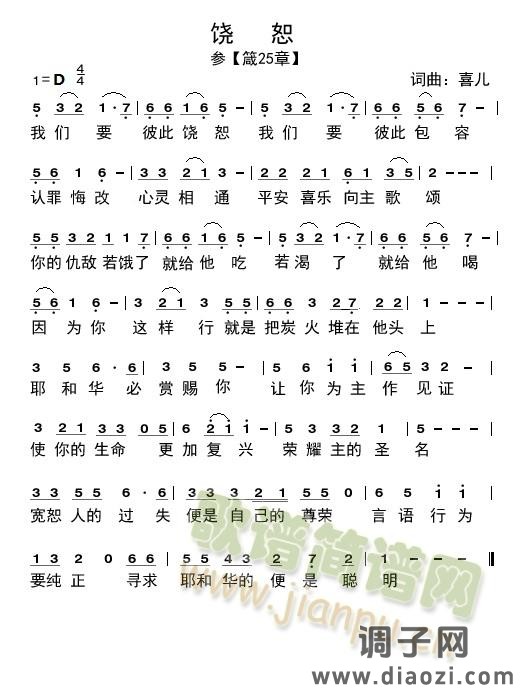 饶 恕
参【箴25章】
1=D 4/4 词曲：喜儿
5 32 1·7 | 66 16 5 - | 5 32 1·7 | 66 56 5 - |
我们 要 彼此 饶 恕 我 们 要 彼此 包 容
65 6 1 - | 33 23 5 - | 22 21 61 35 | 2 - - - |
认罪 悔 改 心灵 相 通 平安 喜乐 向主 歌 颂
55 32 1 1 7 | 66 16 5 - | 5 32 1·7 | 66 56 5 - |
你的 仇敌 若饿 了 就给 他 吃 若 渴 了 就给 他 喝
65 6 1 6 - | 3 21 3 55 | 66 63 27 22 | 1 - - - |
因 为 你 这 样 行 就是 把炭 火 堆在 他头 上
3 5 6·6 | 3 5 5 - | 5 11 1 65 | 3 5 5 - |
耶 和 华 必 赏 赐 你 让 你 为 主 作 见 证
3 21 33 05 | 6 21 1 - | 5 53 3 2 | 1 - - - |
使 你的 生命 更 加 复 兴 荣 耀 主的 圣 名
33 55 6 6 | 33 33 21 55 0 | 65 11 |
宽恕 人的 过 失 便是 自己的 尊荣 言语 行为
13 2 0 66 | 55 43 2 7 2 | 1 - - - ‖
要纯 正 寻求 耶和 华的 便 是 聪 明
歌谱简谱网
www.jianpu.cn
调子网
www.diaozi.com